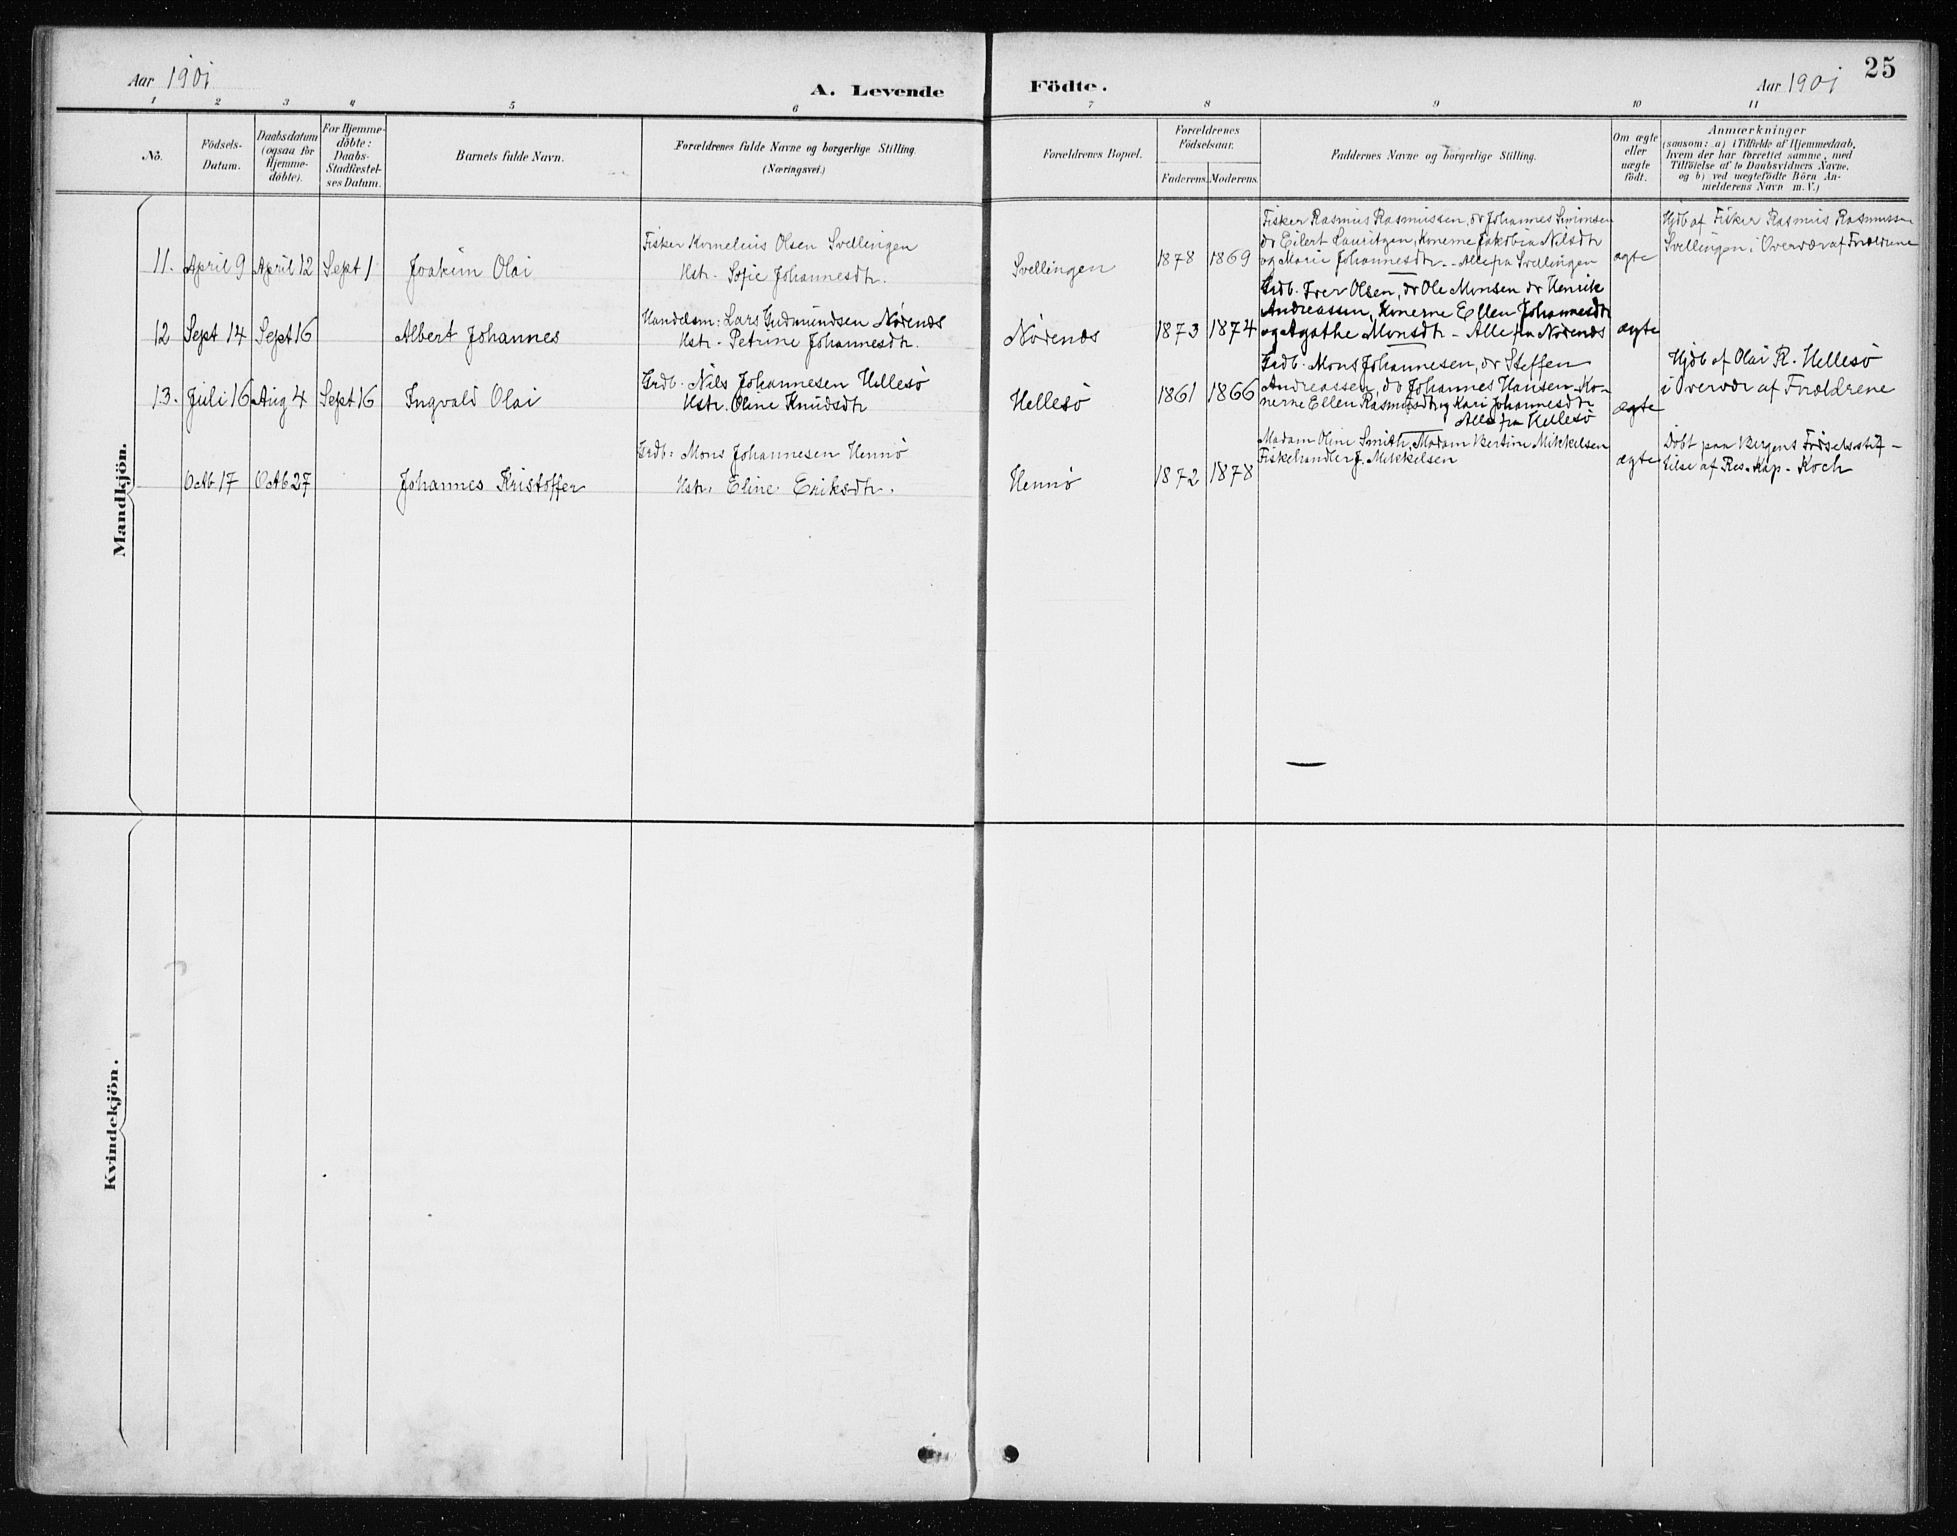 Aar 1901
A. Levende Födte.
Aar 1901
25
1 2 3 4 5 6 7 8 9 10 11
No.
Födsels-
Datum.
Daabsdatum
(ogsaa for
Hjemme-
döbte).
For Hjemme-
döbte:
Daabs-
Stadfæstel-
ses Datum.
Barnets fulde Navn.
Forældrenes fulde Navne og borgerlige Stilling.
(Næringsvei.)
Forældrenes Bopæl.
Forældrenes
Födselsaar.
Faderens. Moderens.
Faddernes Navne og borgerlige Stilling.
Om ægte
eller
uægte
födt.
Anmærkninger
(saasom: a) i Tilfælde af Hjemmedaab,
hvem der har forrettet samme, med
Tilföielse af to Daabsvidners Navne,
og b) ved uægtefödte Börn An-
melderens Navn m. V.)
Mandkjön.
11. April 9 April 12 Sept 1 Joakim Olai
Fisker Kornelius Olsen Svellingen
Hstr. Sofie Johannesdtr.
Svellingen 1878 1869
Fisker Rasmus Rasmussen, do Johannes Simonsen
do Eilert Lauritzen, Konerne Jakobia Nilsdtr
og Marie Johannesdtr. - Alle fra Svellingen
ægte
Hjdb af Fisker Rasmus Rasmussen
Svellingen i Overvær af Forældrene
12 Sept 14 Sept 16 Albert Johannes
Handelsm: Lars Gudmundsen Nørenæs
Hstr. Petrine Johannesdtr.
Nørenæs 1873 1874
Grdb. Iver Olsen, do Ole Monsen do Henrik
Andreassen, Konerne Ellen Johannesdtr
og Agathe Monsdtr - Alle fra Nørenæs
ægte
13. Juli 16 Aug 4 Sept 16 Ingvald Olai
Grdb. Nils Johannesen Hellesø
Hstr. Oline Knudsdtr
Hellesø 1861 1866
Grdb. Mons Johannesen, do Steffen
Andreassen, do Johannes Hansen Ko-
nerne Ellen Rasmusdtr og Kari Johannesdtr
Alle fra Hellesø
ægte
Hjdb af Olai R. Hellesø
i Overvær af Forældrene
Octb 17 Octb 27 Johannes Kristoffer
Grdb: Mons Johannesen Hennø
Hstr. Eline Eriksdtr.
Hennø 1872 1878
Madam Oline Smith, Madam Bertine Mikkelsen
Fiskehandler J. Mikkelsen
ægte
Døbt paa Bergens Fødselsstif-
telse af Res. Kap. Koch
Kvindekjön.